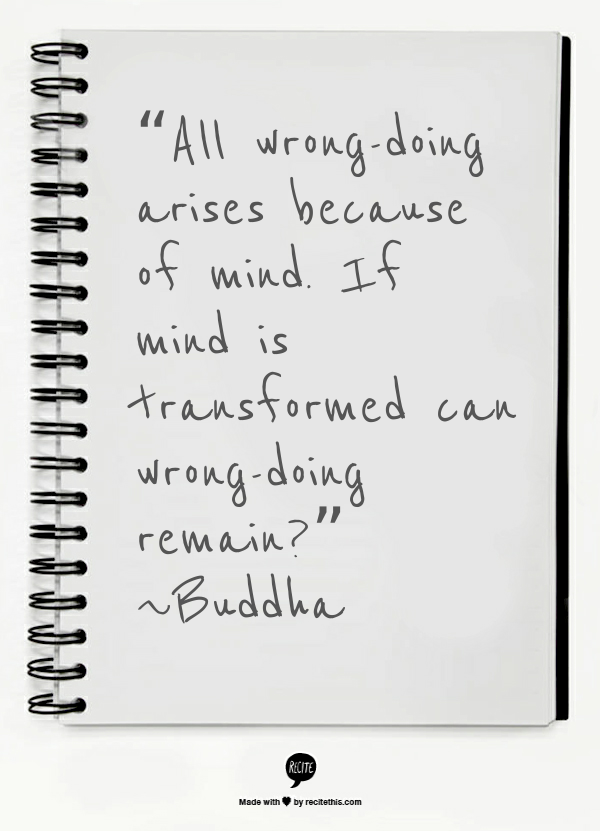 “All wrong-doing
arises because
of mind. If
mind is
transformed can
wrong-doing
remain?”
~Buddha
RECITE
Made with ♥ by recitethis.com